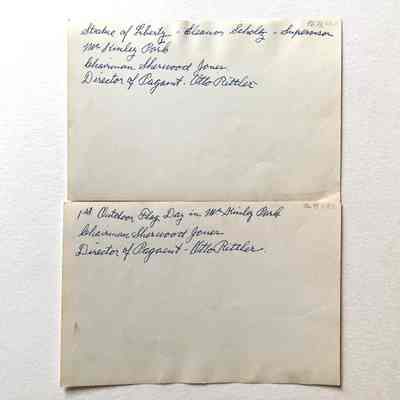 Statue of Liberty - Eleanor Scholtz - Supervisor
Mc Kinley Park
Chairman Sherwood Jones
Director of Pagaent - Otto Rittler
1st Outdoor Flag Day in Mc Kinley Park
Chairman Sherwood Jones
Director of Pagaent - Otto Rittler